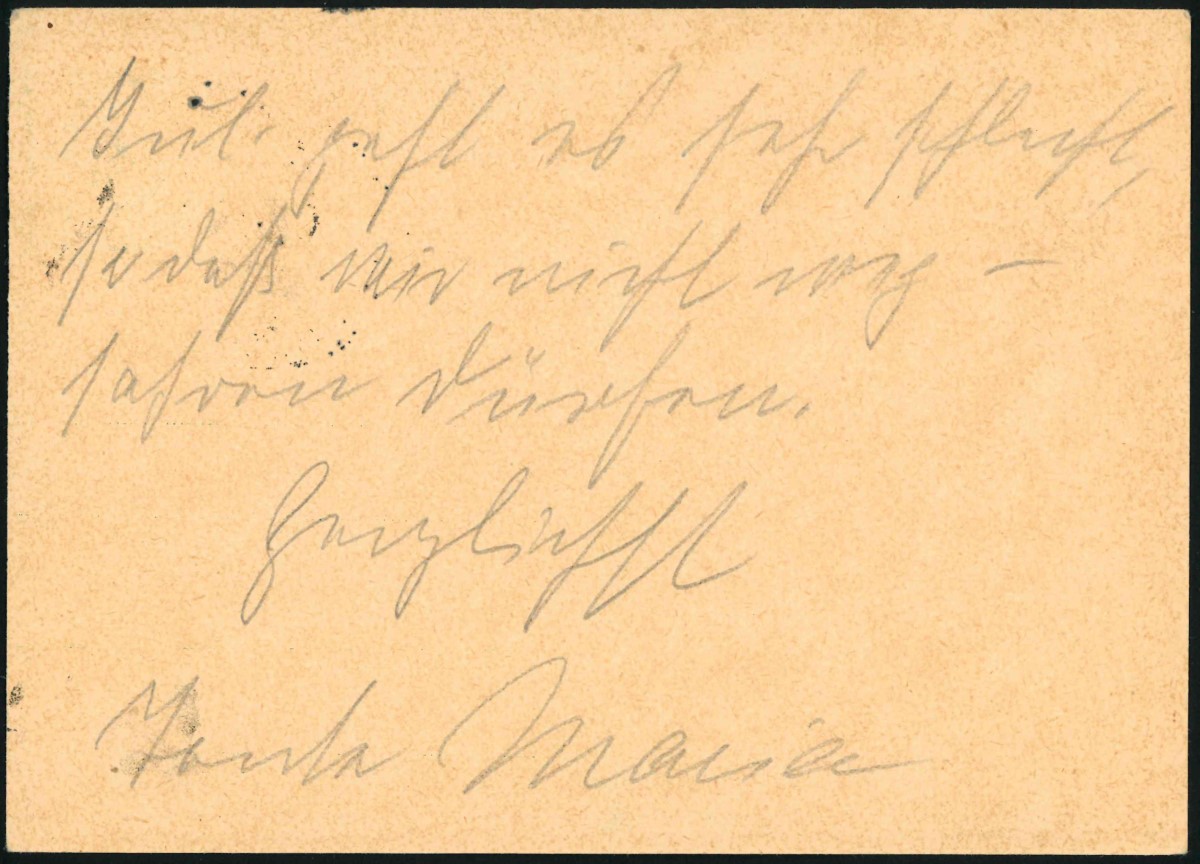 geht es sehr schlecht,
so daß wir nicht weg-
fahren dürfen.
Herzlichst
Tante Maria